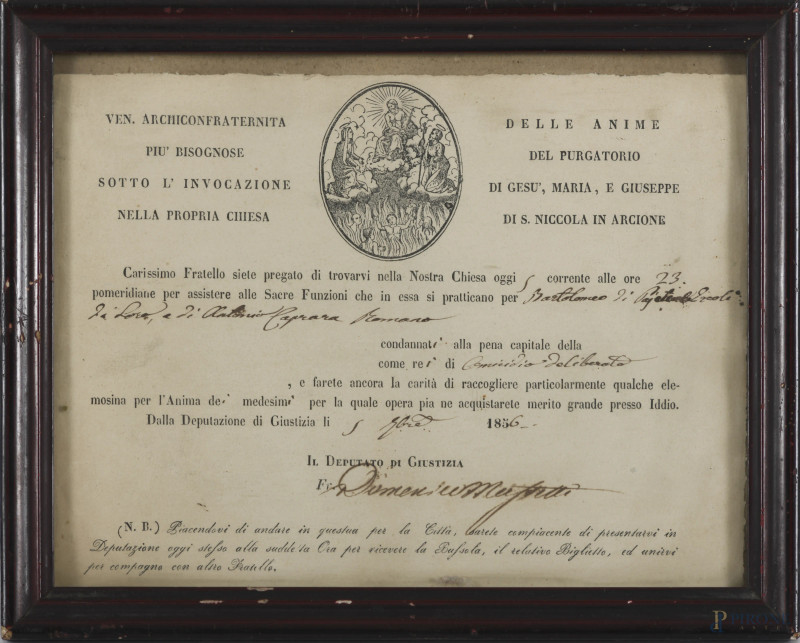 VEN. ARCHICONFRATERNITA
PIU' BISOGNOSE
SOTTO L' INVOCAZIONE
NELLA PROPRIA CHIESA
DELLE ANIME
DEL PURGATORIO
DI GESU', MARIA, E GIUSEPPE
DI S. NICCOLA IN ARCIONE
Carissimo Fratello siete pregato di trovarvi nella Nostra Chiesa oggi 5 corrente alle ore 23
pomeridiane per assistere alle Sacre Funzioni che in essa si pratticano per Bartolomeo di Ercoli
da Sora, e di Antonio Caprara Romano
condannati alla pena capitale della
come rei di Omicidio deliberato
, e farete ancora la carità di raccogliere particolarmente qualche ele-
mosina per l'Anima dei medesimi per la quale opera pia ne acquistarete merito grande presso Iddio.
Dalla Deputazione di Giustizia li 5 1856
IL DEPUTATO DI GIUSTIZIA
Domenico
(N. B.) Piacendovi di andare in questua per la Città, sarete compiacente di presentarvi in
Deputazione oggi stesso alla suddetta Ora per ricevere la Bussola, il relativo Biglietto, ed unirvi
per compagno con altro Fratello.